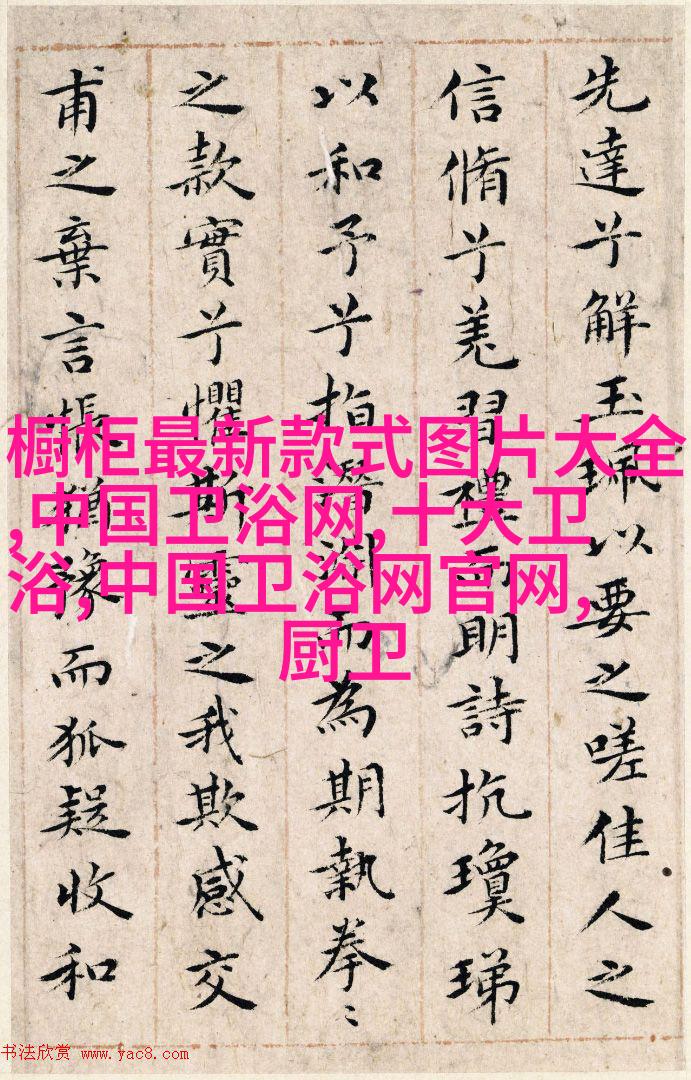 先達兮解玉珮以要之嗟佳人之
信脩兮羌習禮而明詩抗瓊珶
以和予兮指潛淵而為期執拳〻
之款實兮懼斯靈之我欺感交
甫之棄言悵猶豫而狐疑收和
橱柜最新款式图片大全
,中国卫浴网,十大卫
浴,中国卫浴网官网,
厨卫
书法欣赏 www.yac8.com